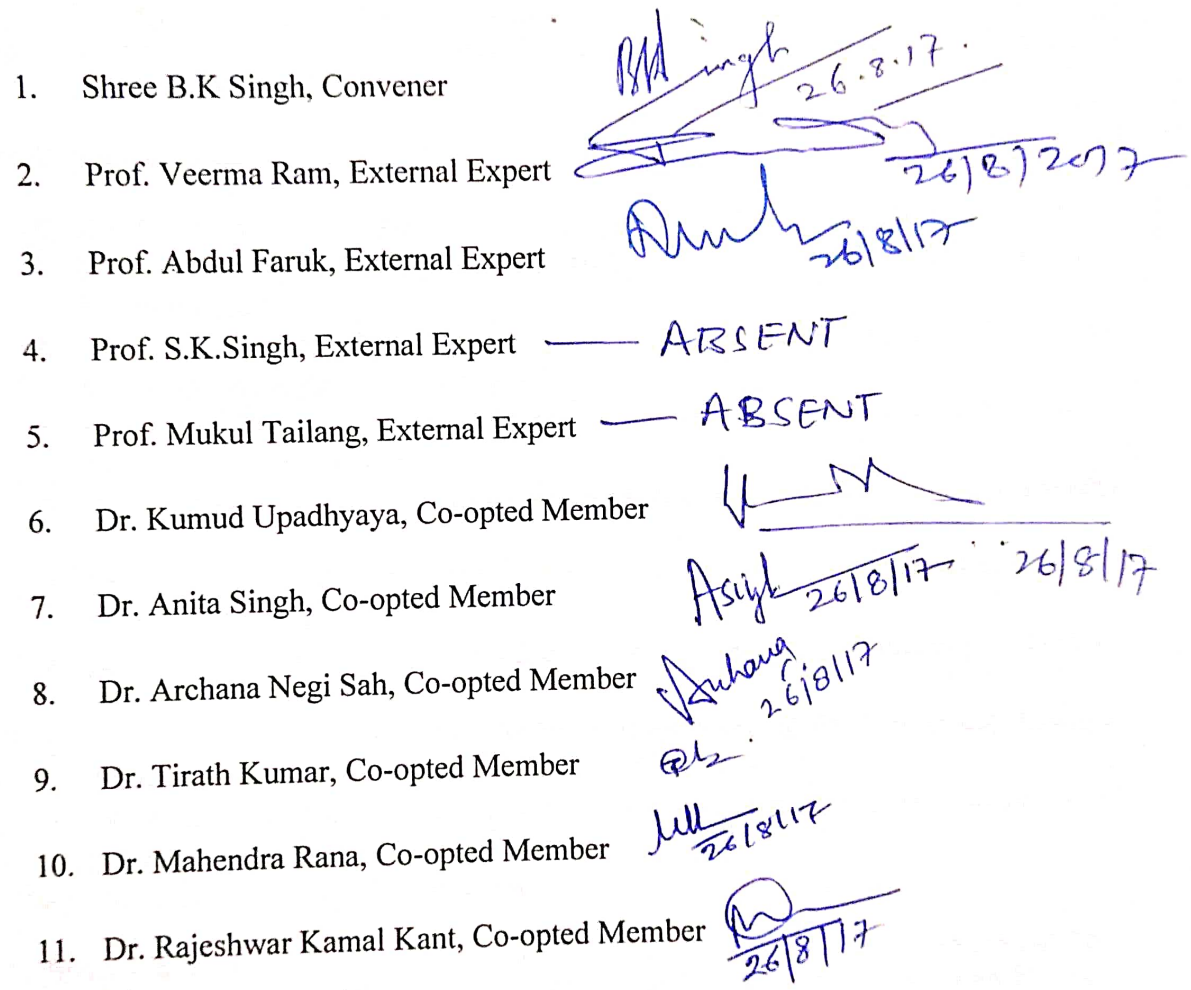 1. Shree B.K Singh, Convener BKSingh 26.8.17.
2. Prof. Veerma Ram, External Expert 26/8/2017
3. Prof. Abdul Faruk, External Expert 26/8/17
4. Prof. S.K.Singh, External Expert — ABSENT
5. Prof. Mukul Tailang, External Expert — ABSENT
6. Dr. Kumud Upadhyaya, Co-opted Member 26/8/17
7. Dr. Anita Singh, Co-opted Member 26/8/17
8. Dr. Archana Negi Sah, Co-opted Member Archana 26/8/17
9. Dr. Tirath Kumar, Co-opted Member
10. Dr. Mahendra Rana, Co-opted Member 26/8/17
11. Dr. Rajeshwar Kamal Kant, Co-opted Member 26/8/17